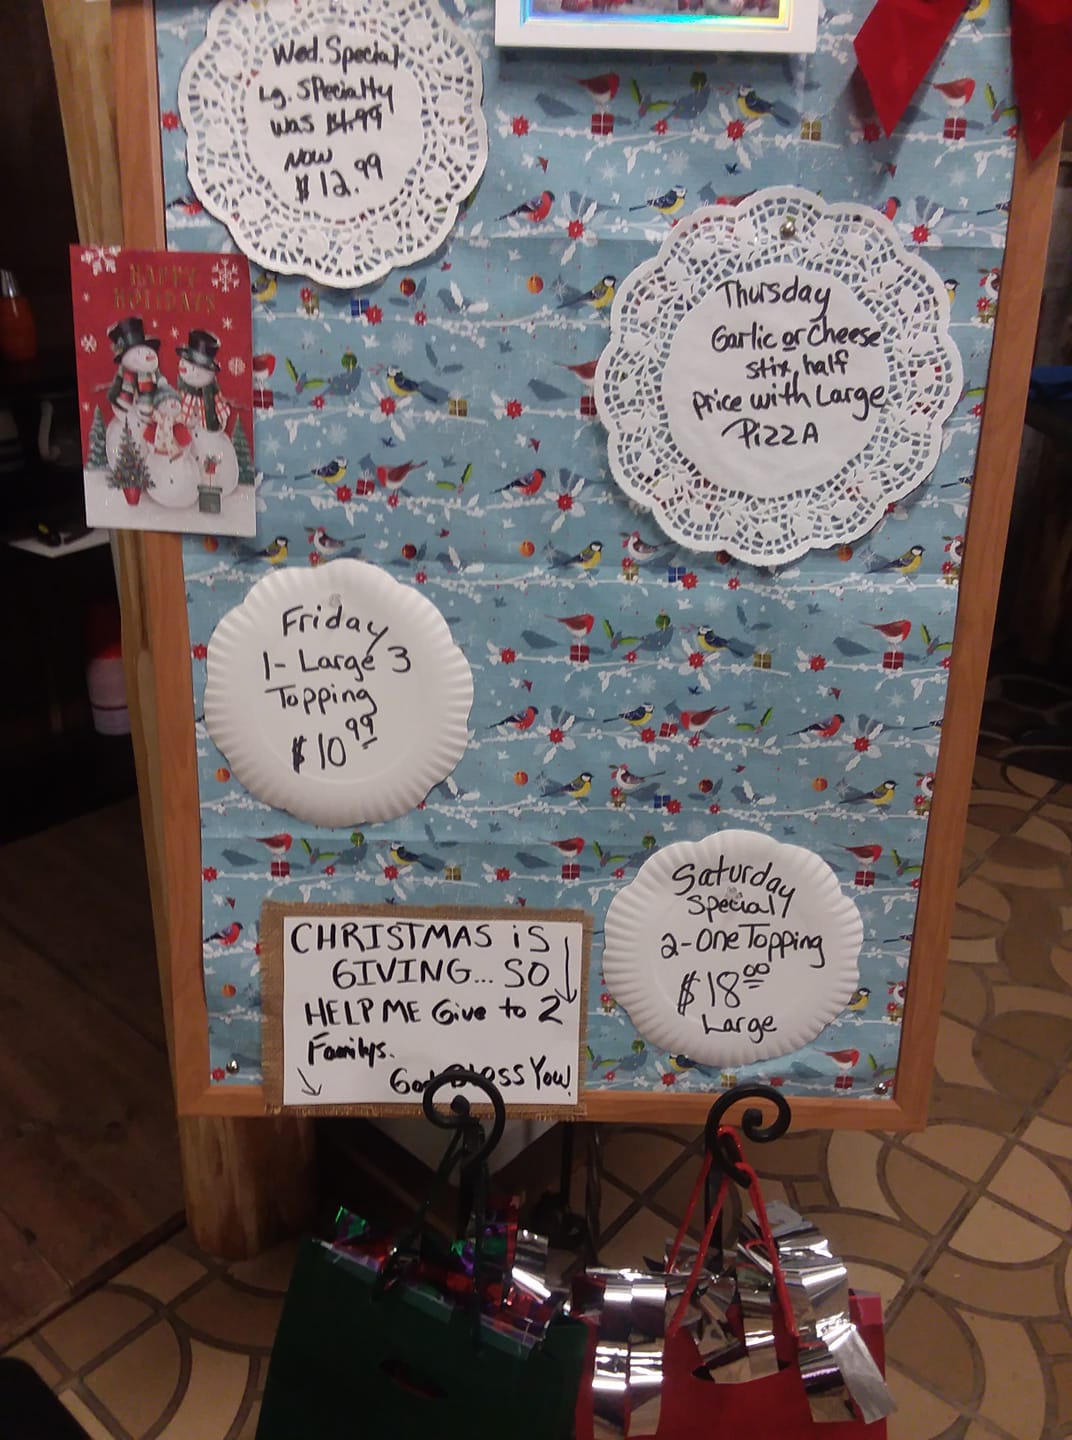 Wed. Special
Lg. Specialty
was 14.99
NOW
$12.99
HAPPY
HOLIDAYS
Thursday
Garlic or Cheese
stix, half
price with Large
PizzA
Friday
1- Large 3
Topping
$10 99
CHRISTMAS iS
GIVING... SO
HELP ME Give to 2
Familys.
God Bless You!
Saturday
Special
2-One Topping
$18 00
Large